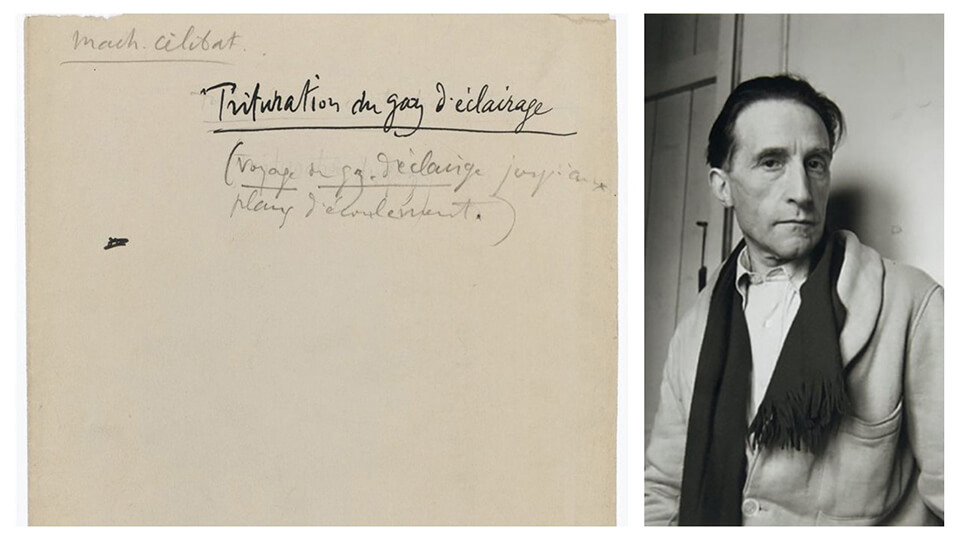 Mach. célibat.
Trituration du gaz d'éclairage
(voyage du gaz d'éclairage jusqu'aux
plans d'écoulement.)